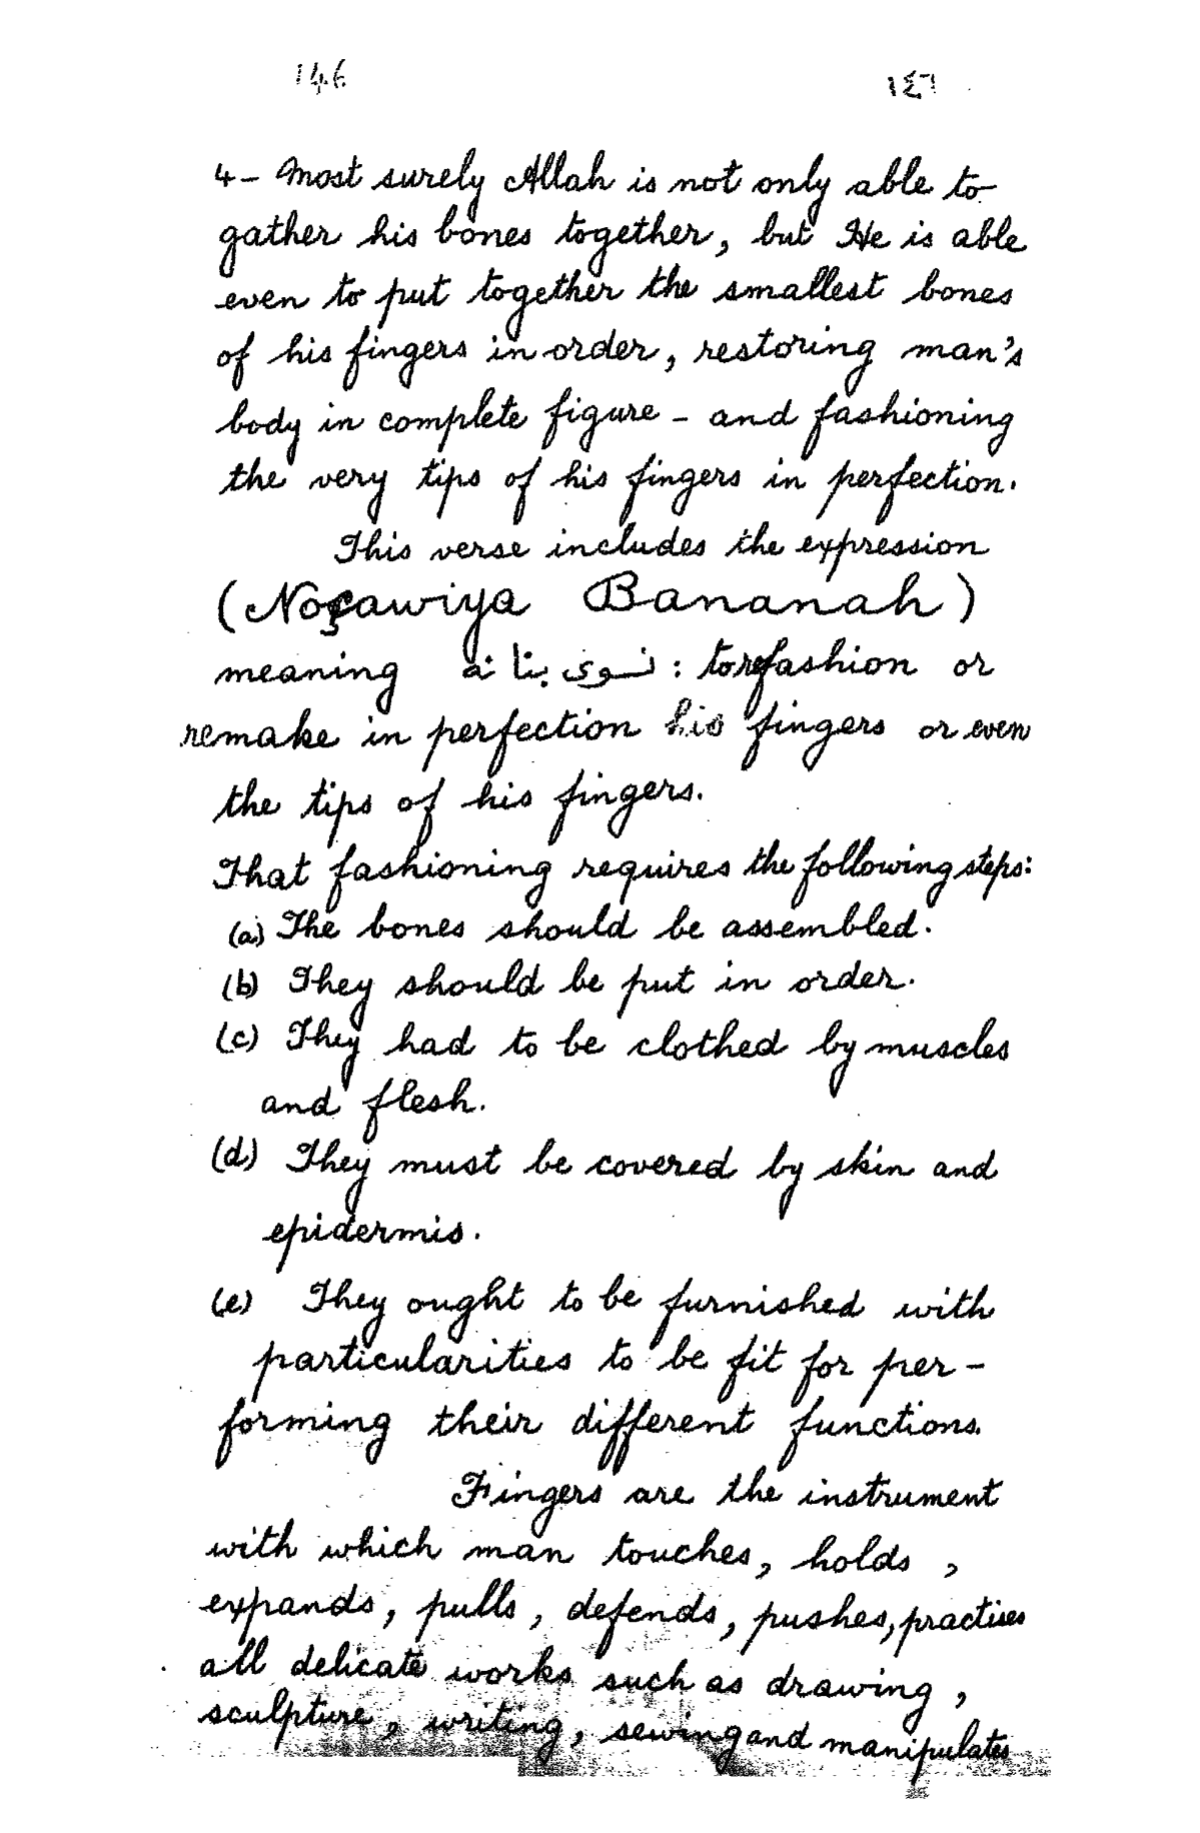 146 ١٤٦
4- Most surely Allah is not only able to
gather his bones together, but He is able
even to put together the smallest bones
of his fingers in order, restoring man's
body in complete figure - and fashioning
the very tips of his fingers in perfection.
This verse includes the expression
(Noçawiya Bananah)
meaning نسوى بنانه : to refashion or
remake in perfection his fingers or even
the tips of his fingers.
That fashioning requires the following steps:
(a) The bones should be assembled.
(b) They should be put in order.
(c) They had to be clothed by muscles
and flesh.
(d) They must be covered by skin and
epidermis.
(e) They ought to be furnished with
particularities to be fit for per-
forming their different functions.
Fingers are the instrument
with which man touches, holds ,
expands, pulls, defends, pushes, practises
all delicate works such as drawing ,
sculpture, writing, sewing and manipulates